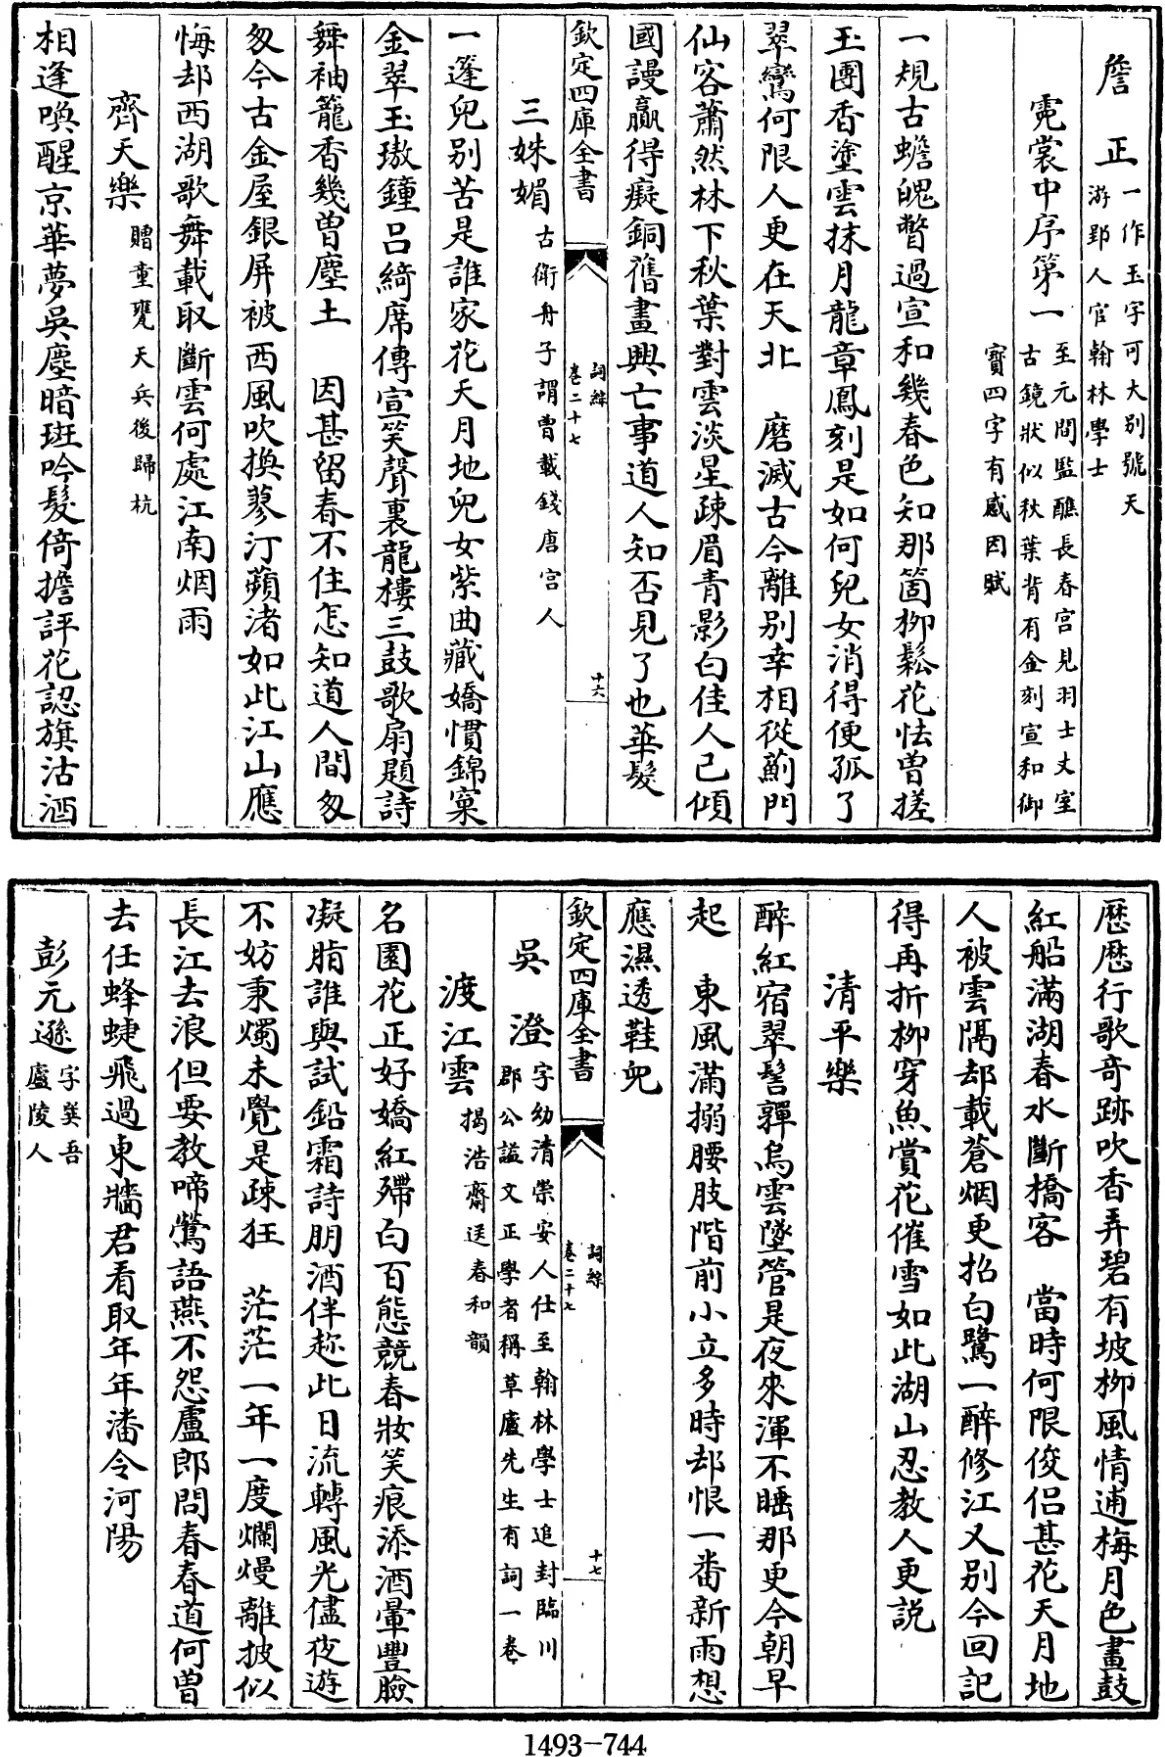 詹　正一作玉字可大別號天
游郢人官翰林學士
霓裳中序第一至元間監醮長春宮見羽士丈室
古鏡狀似秋葉背有金刻宣和御
寳四字有感因賦
一規古蟾魄瞥過宣和幾春色知那箇柳鬆花怯曽搓
玉團香塗雲抹月龍章鳳刻是如何兒女消得便孤了
翠鸞何限人更在天北　磨滅古今離别幸相從薊門
仙客蕭然林下秋葉對雲淡星疎眉青影白佳人已傾
國謾贏得癡銅舊畫興亡事道人知否見了也華髮
欽定四庫全書
詞綜
卷二十七
十六
三姝媚古衛舟子謂曽載錢唐宫人
一篷兒别苦是誰家花天月地兒女紫曲藏嬌慣錦窠
金翠玉璈鐘吕綺席傳宣笑聲裏龍樓三鼓歌扇題詩
舞袖籠香幾曽塵土　因甚留春不住怎知道人間匆
匆今古金屋銀屏被西風吹換蓼汀蘋渚如此江山應
悔却西湖歌舞載取斷雲何處江南烟雨
齊天樂贈童甕天兵後歸杭
相逢喚醒京華夢吳塵暗斑吟髮倚擔評花認旗沽酒
歷歷行歌竒跡吹香弄碧有坡柳風情逋梅月色畫鼓
紅船滿湖春水斷橋客　當時何限俊侣甚花天月地
人被雲隔却載蒼烟更招白鷺一醉修江又别今回記
得再折柳穿魚賞花催雪如此湖山忍教人更説
清平樂
醉紅宿翠髻嚲烏雲墜管是夜來渾不睡那更今朝早
起　東風滿搦腰肢階前小立多時却恨一番新雨想
應濕透鞋兒
欽定四庫全書
詞綜
卷二十七
十七
吳　澄字幼清崇安人仕至翰林學士追封臨川
郡公諡文正學者稱草廬先生有詞一卷
渡江雲揭浩齋送春和韻
名園花正好嬌紅殢白百態競春妝笑痕添酒暈豐臉
凝脂誰與試鉛霜詩朋酒伴趂此日流轉風光儘夜遊
不妨秉燭未覺是疎狂　茫茫一年一度爛熳離披似
長江去浪但要教啼鶯語燕不怨盧郎問春春道何曽
去任蜂蜨飛過東牆君看取年年潘令河陽
彭元遜字巽吾
廬陵人
1493-744